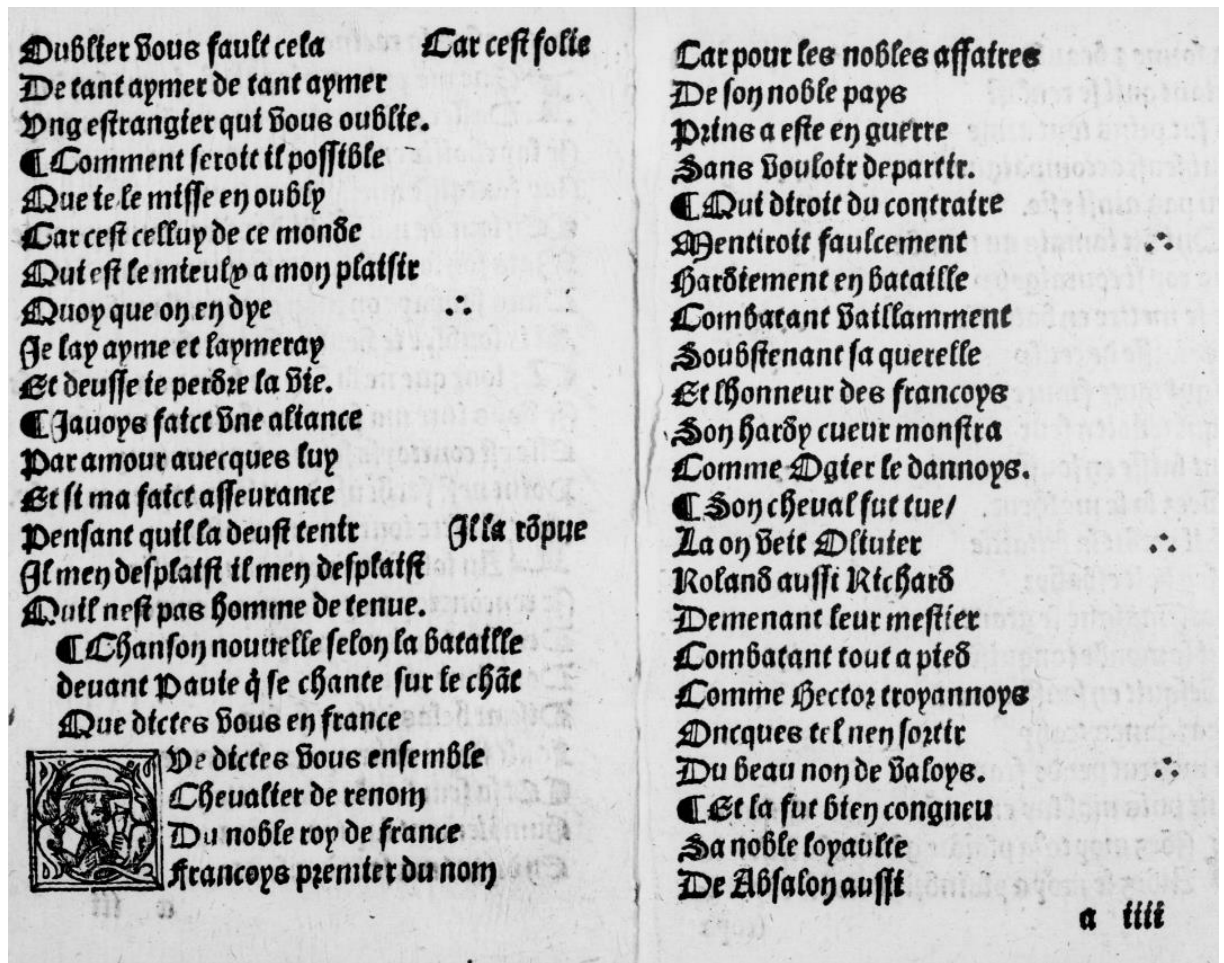 Oublier vous fault cela Car cest folie
De tant aymer de tant aymer
Ung estrangier qui vous oublie.
¶ Comment seroit il possible
Que ie le misse en oubly
Car cest celluy de ce monde
Qui est le mieulx a mon plaisir
Quoy que on en dye ∴
Je lay ayme et laymeray
Et deusse ie perdre la vie.
¶ Javoys faict vne aliance
Par amour auecques luy
Et si ma faict asseurance
Pensant quil la deust tenir Il la rõpue
Il men desplaist il men desplaist
Quil nest pas homme de tenue.
¶ Chanson nouuelle selon la bataille
devant Pauie q̃ se chante sur le chãt
Que dictes vous en france
Ve dictes vous ensemble
Chevalier de renom
Du noble roy de france
Francoys premier du nom
Car pour les nobles affaires
De son noble pays
Prins a este en guerre
Sans vouloir departir.
¶ Qui diroit du contraire
Mentiroit faulcement ∴
Hardiement en bataille
Combatant vaillamment
Soubstenant sa querelle
Et lhonneur des francoys
Son hardy cueur monstra
Comme Ogier le dannoys.
¶ Son cheual fut tue/
La on veit Oliuier ∴
Roland aussi Richard
Demenant leur mestier
Combatant tout a pied
Comme Hector troyannoys
Oncques tel nen sortir
Du beau non de valoys. ∴
¶ Et la fut bien congneu
Sa noble loyaulte
De Absalon aussi
a iiii